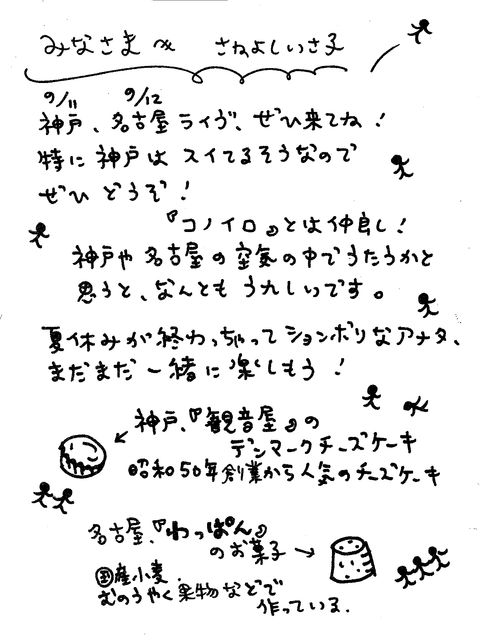 みなさまへ さねよしいさ子
9/11 9/12
神戸、名古屋ライヴ、ぜひ来てね!
特に神戸はスイてるそうなので
ぜひどうぞ!
『コノイロ』とは仲良し!
神戸や名古屋の空気の中でうたうかと
思うと、なんともうれしいです。
夏休みが終わっちゃってションボリなアナタ、
まだまだ一緒に楽しもう!
神戸、『観音屋』の
デンマークチーズケーキ
昭和50年創業から人気のチーズケーキ
名古屋、『わっぱん』
のお菓子
国産小麦、
むのうやく果物などで
作っている.